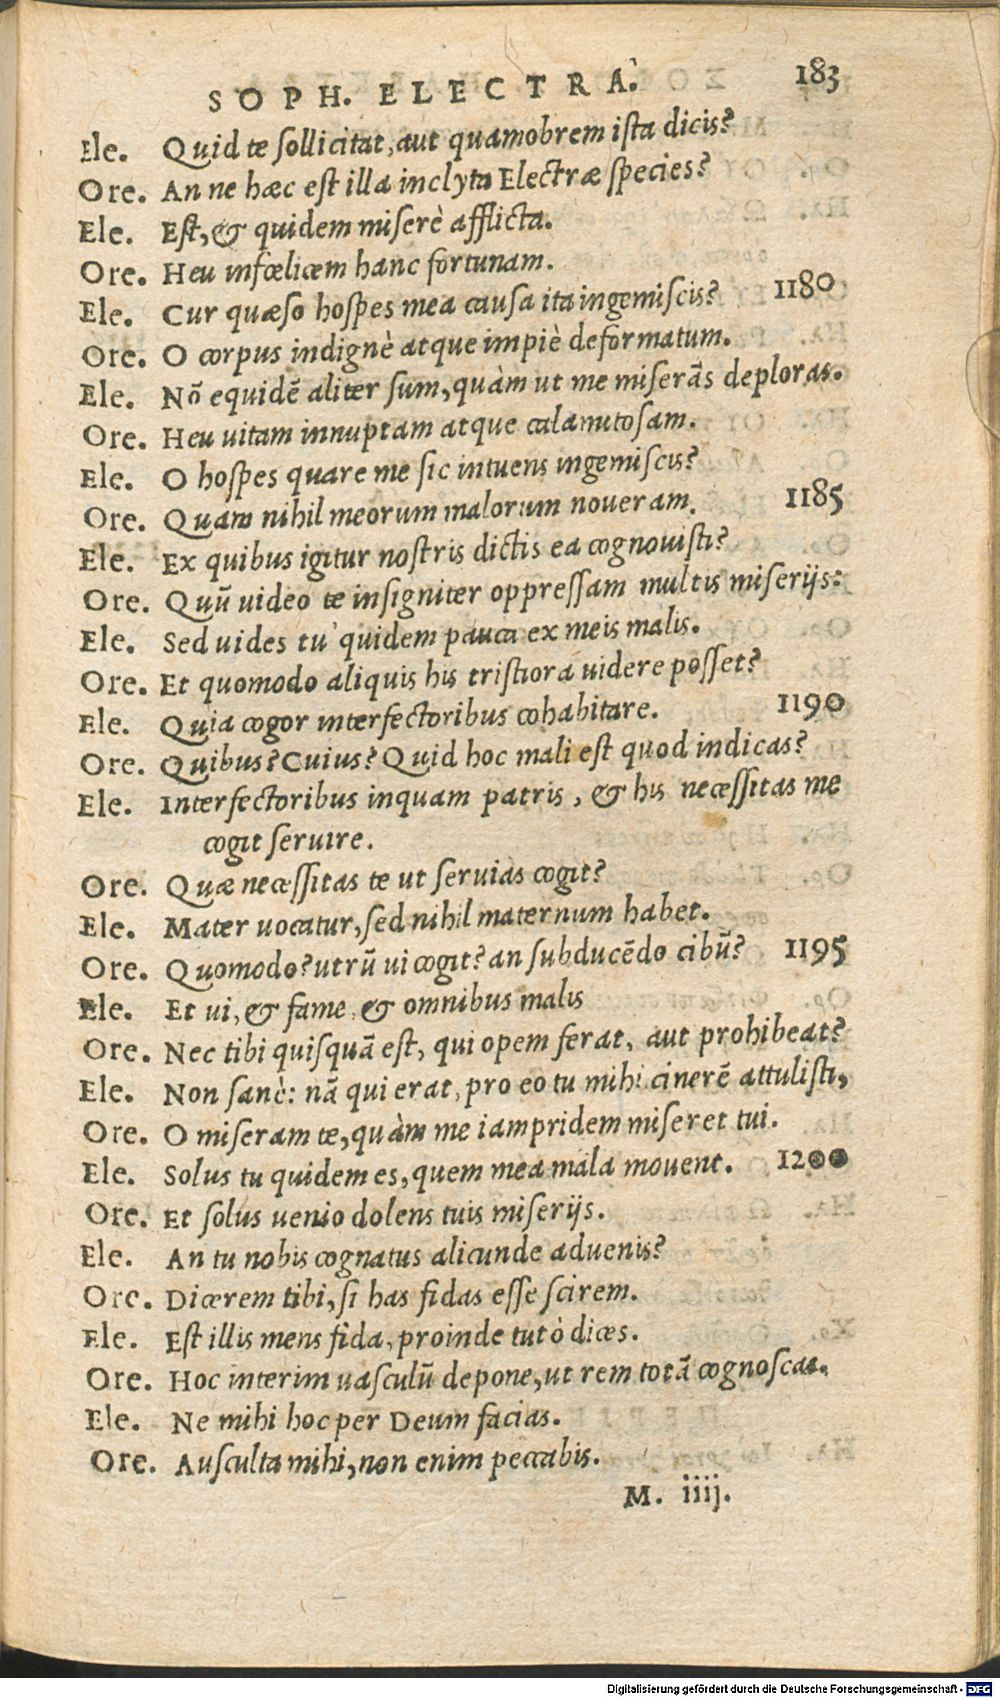 SOPH. ELECTRA. 183
Ele. Quid te sollicitat, aut quamobrem ista dicis?
Ore. An ne hæc est illa inclyta Electræ species?
Ele. Est, & quidem miserè afflicta.
Ore. Heu infœlicem hanc fortunam.
Ele. Cur quæso hospes mea causa ita ingemiscis? 1180
Ore. O corpus indignè atque impiè deformatum.
Ele. Nō equidē aliter sum, quàm ut me miserãs deploras.
Ore. Heu uitam innuptam atque calamitosam.
Ele. O hospes quare me sic intuens ingemiscis?
Ore. Quam nihil meorum malorum noueram. 1185
Ele. Ex quibus igitur nostris dictis ea cognouisti?
Ore. Quū uideo te insigniter oppressam multis miserijs:
Ele. Sed uides tu quidem pauca ex meis malis.
Ore. Et quomodo aliquis his tristiora uidere posset?
Ele. Quia cogor interfectoribus cohabitare. 1190
Ore. Quibus? Cuius? Quid hoc mali est quod indicas?
Ele. Interfectoribus inquam patris, & his necessitas me
cogit seruire.
Ore. Quæ necessitas te ut seruias cogit?
Ele. Mater uocatur, sed nihil maternum habet.
Ore. Quomodo? utrū ui cogit? an subducēdo cibū? 1195
Ele. Et ui, & fame, & omnibus malis
Ore. Nec tibi quisquã est, qui opem ferat, aut prohibeat?
Ele. Non sanè: nã qui erat, pro eo tu mihi cinerē attulisti,
Ore. O miseram te, quàm me iampridem miseret tui.
Ele. Solus tu quidem es, quem mea mala mouent. 1200
Ore. Et solus uenio dolens tuis miserijs.
Ele. An tu nobis cognatus alicunde aduenis?
Ore. Dicerem tibi, si has fidas esse scirem.
Ele. Est illis mens fida, proinde tutò dices.
Ore. Hoc interim uasculū depone, ut rem totã cognoscas.
Ele. Ne mihi hoc per Deum facias.
Ore. Ausculta mihi, non enim peccabis.
M. iiij.
Digitalisierung gefördert durch die Deutsche Forschungsgemeinschaft - DFG